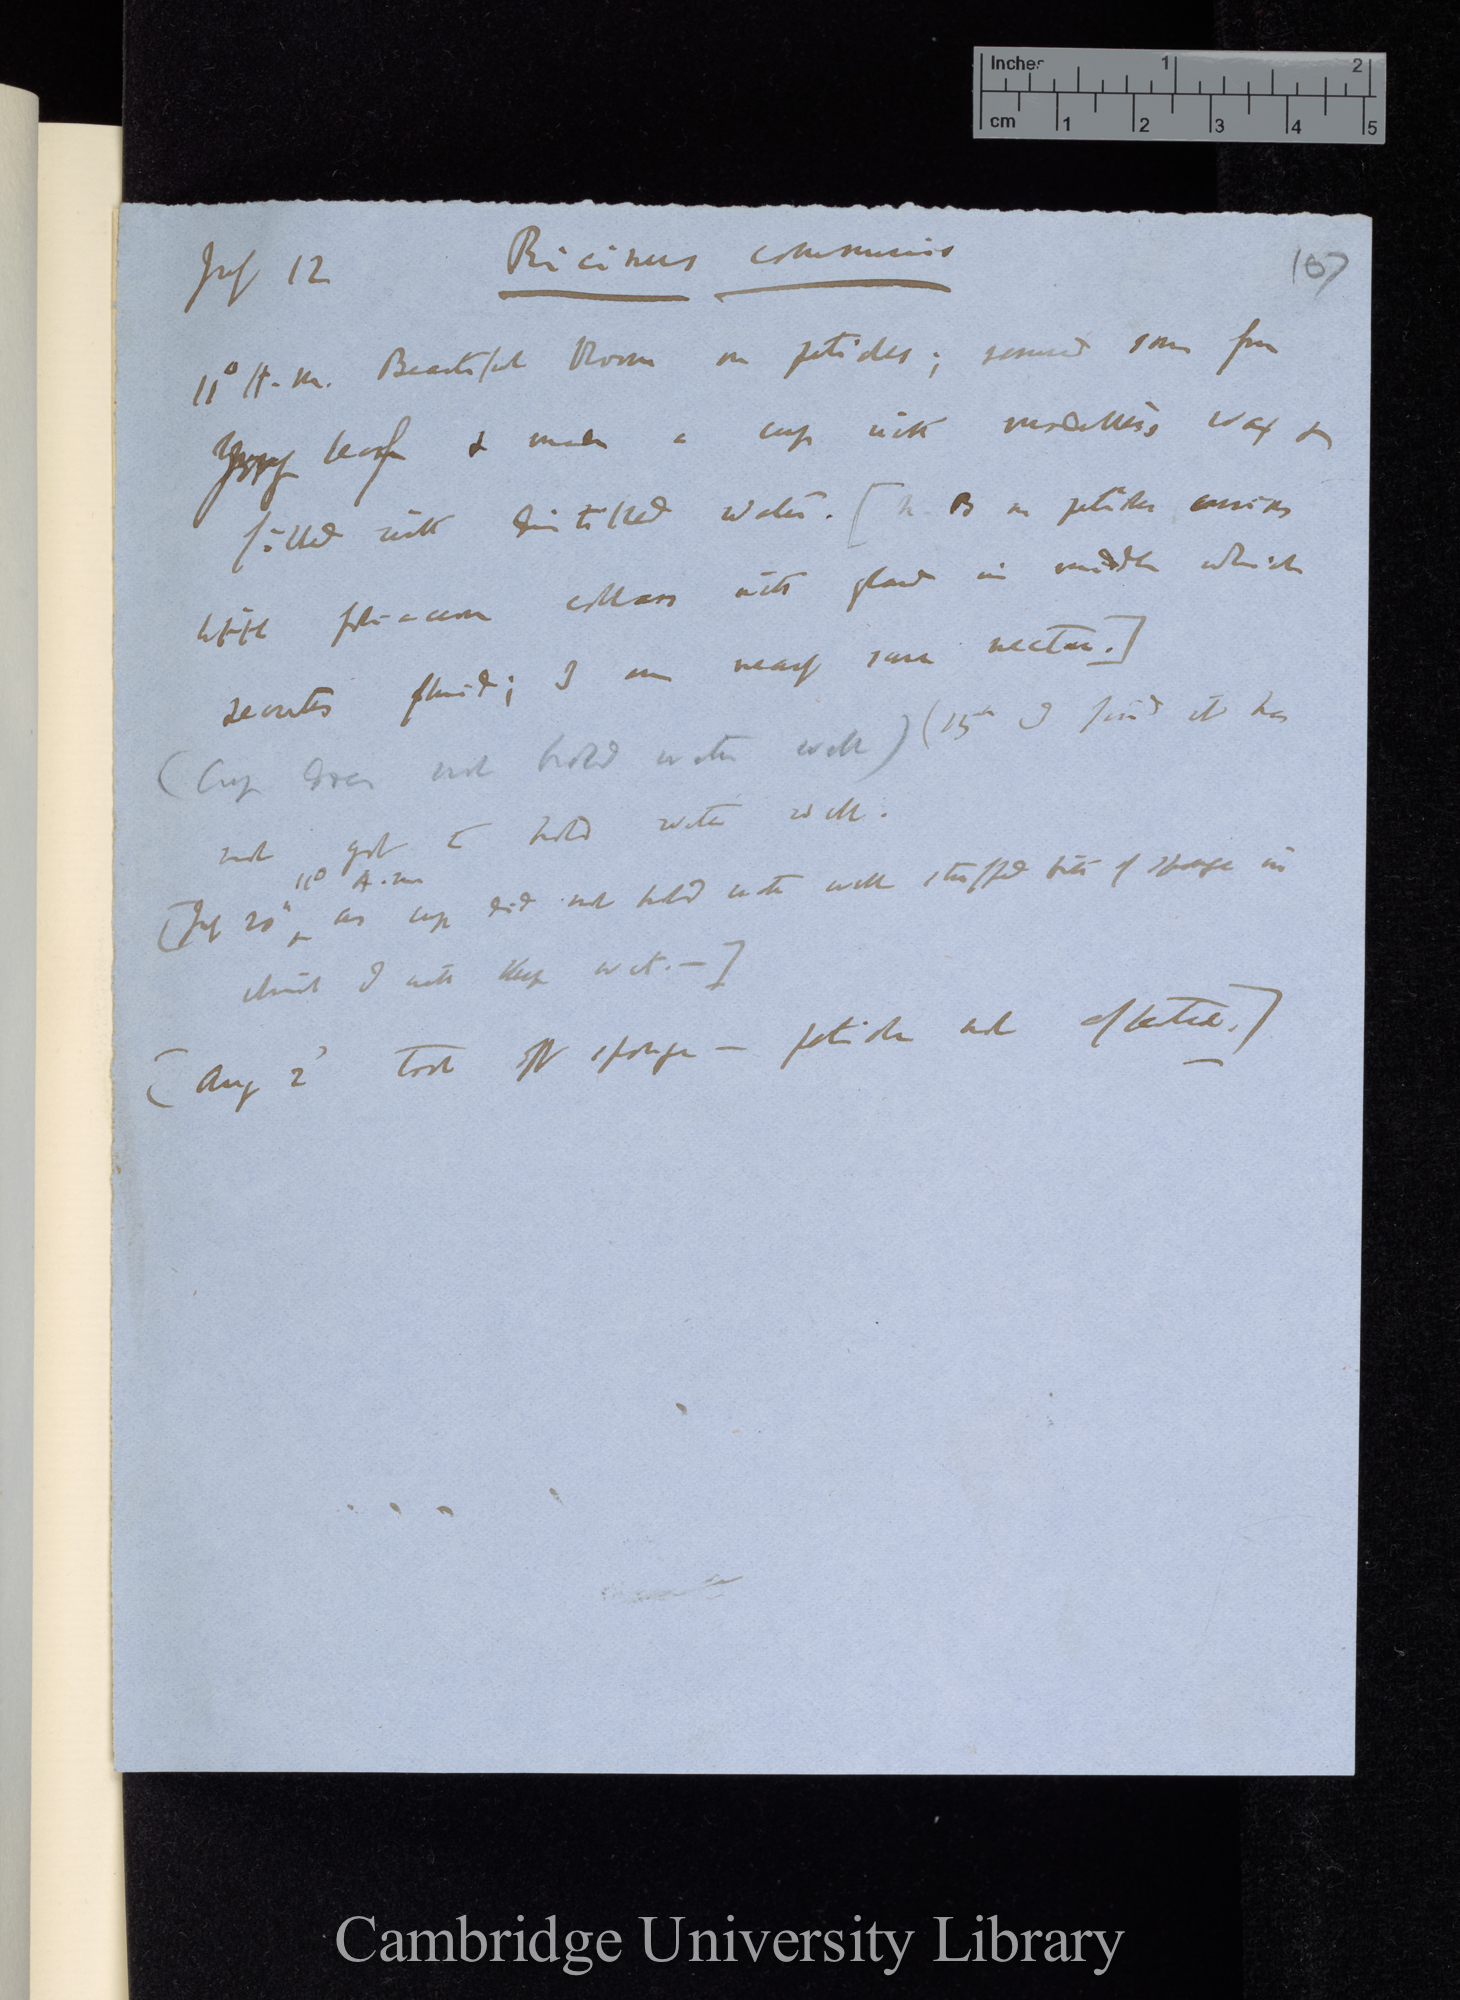 Inches 1 2
cm 1 2 3 4 5
July 12 Ricinus communis 107
11° A.m. Beautiful bloom on petioles; removed some from
young leaf & made a cup with modelling wax &
filled with distilled water. [N.B on petioles
with foliaceous with gland in middle which
secretes fluid; I am nearly sure nectar.]
(Cup does not hold water well) (15th I find it has
not got to hold water well.
11° A.m
[July 20th as cup did not hold water well stuffed bits of sponge in
which I will keep wet.—]
[Aug 2d Took off sponge — petiole not affected.]
Cambridge University Library